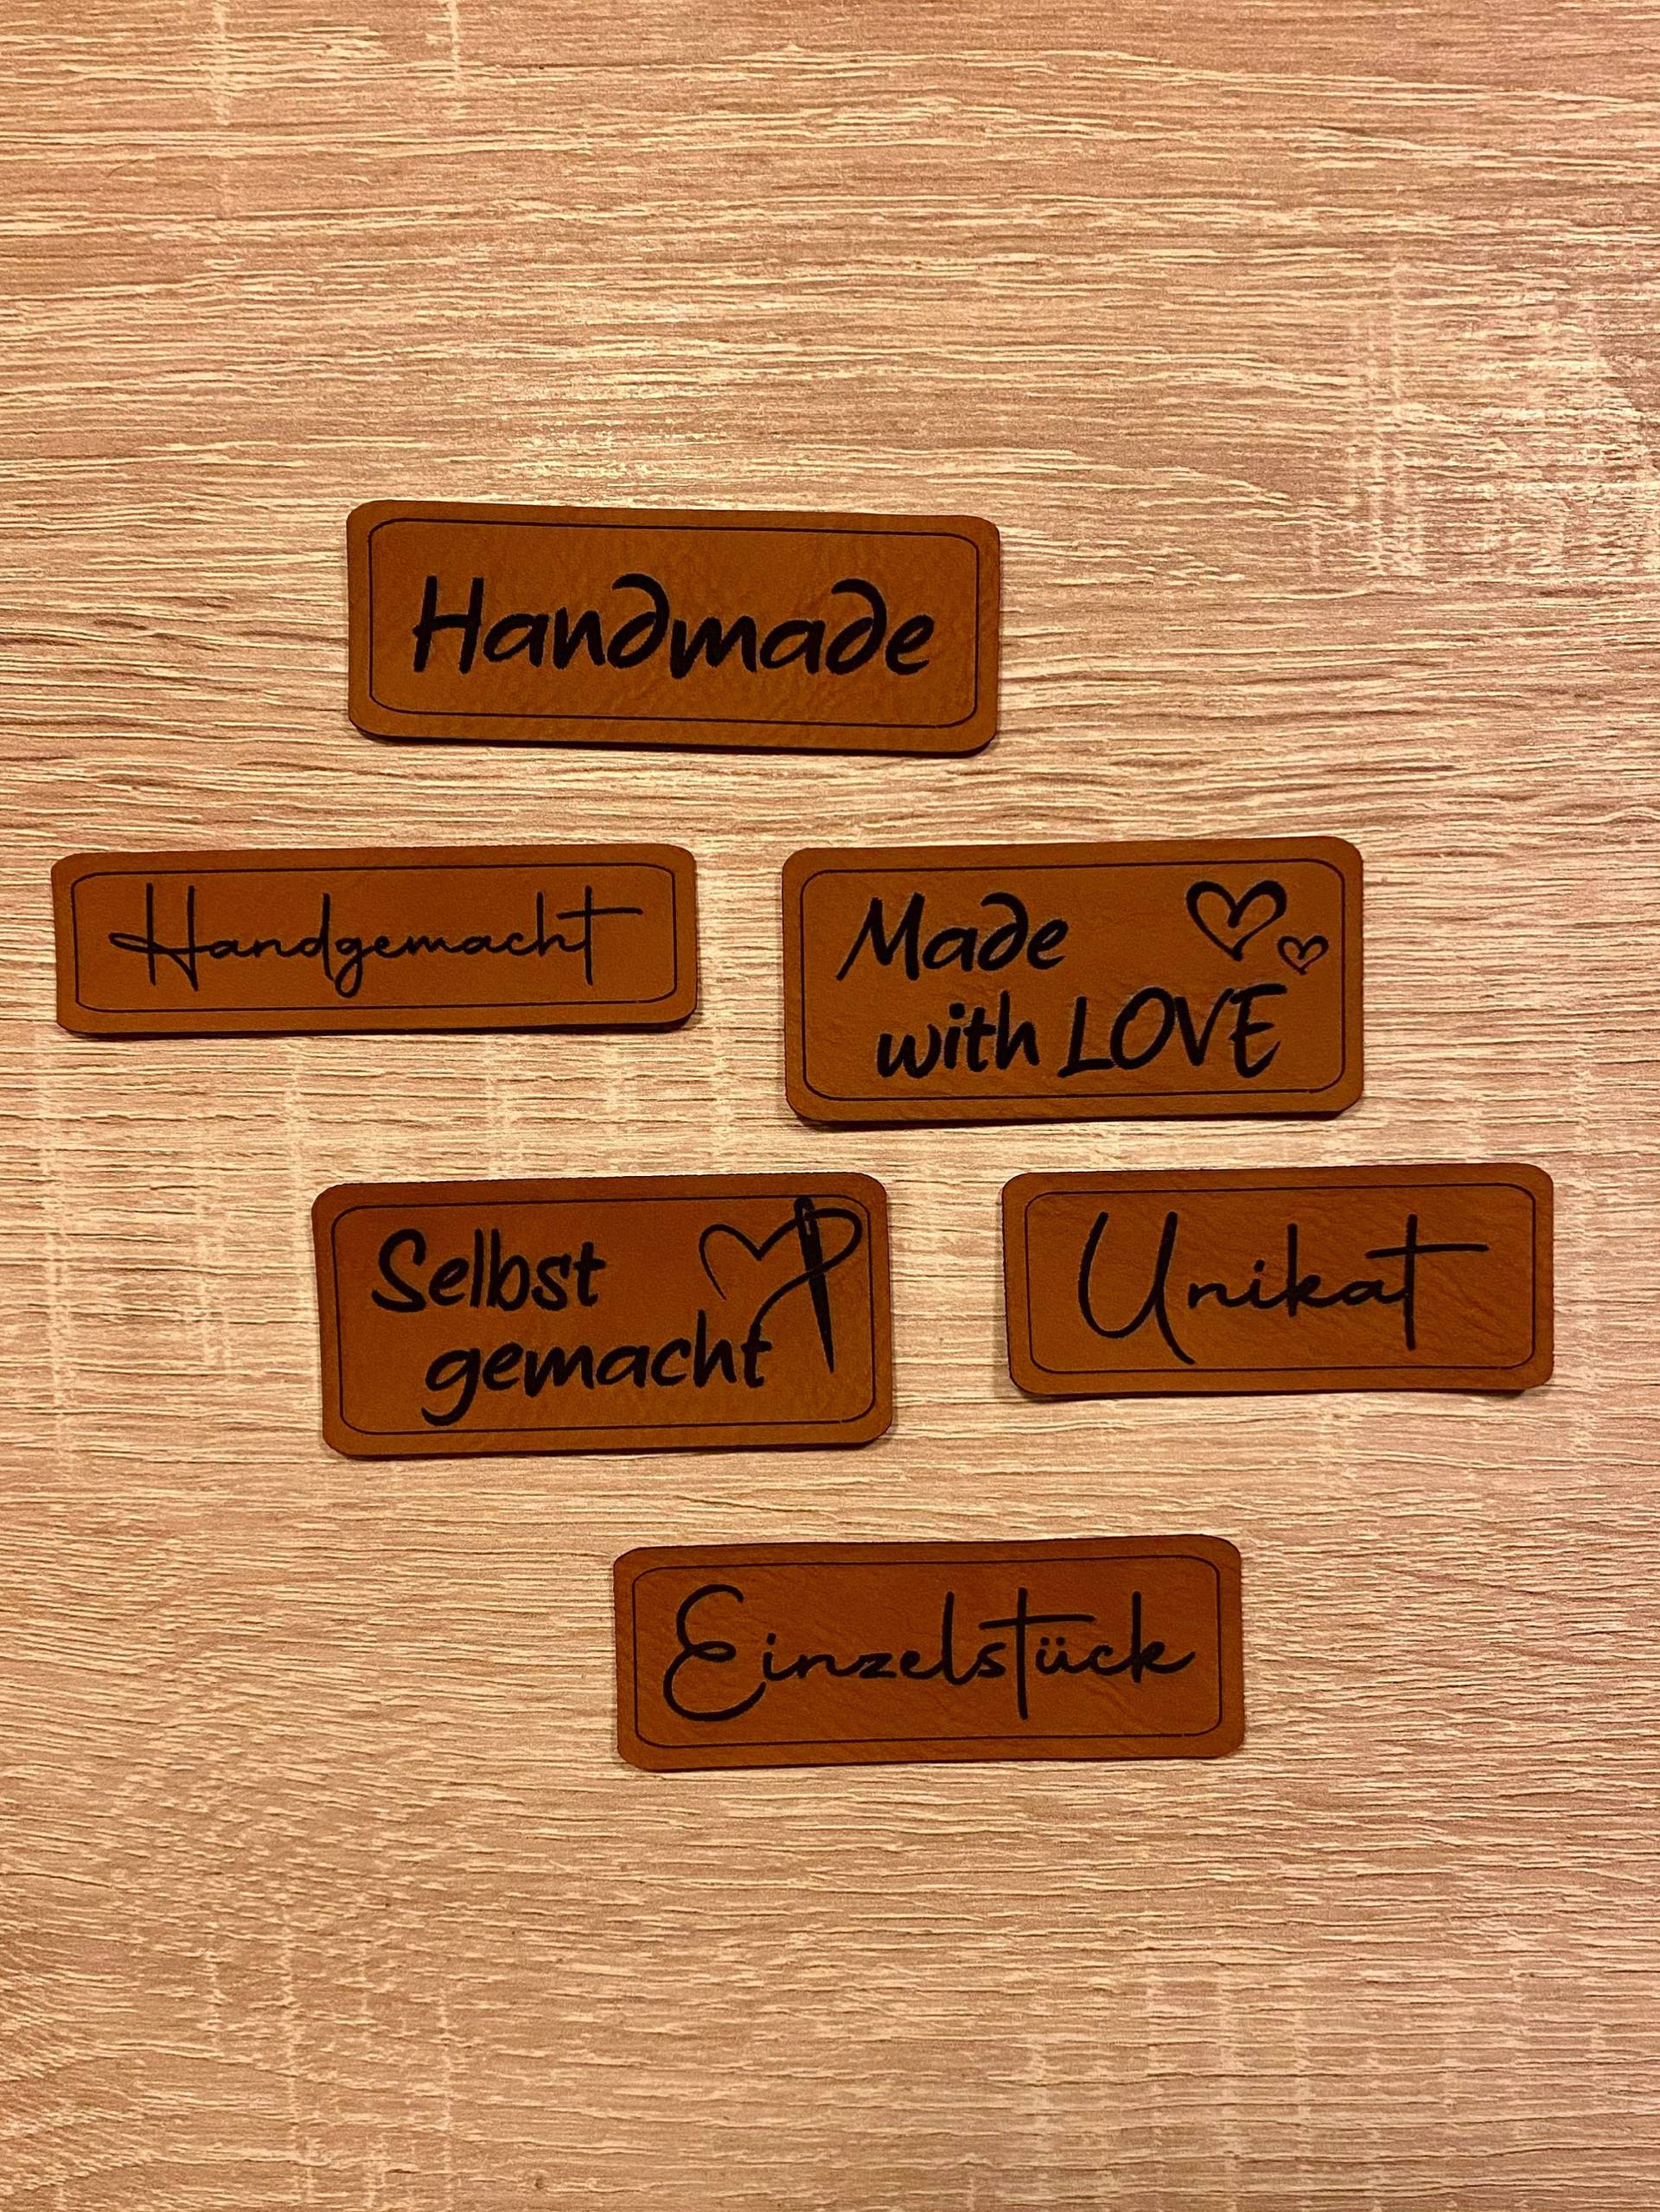 Handmade
Handgemacht
Made
with LOVE
Selbst
gemacht
Unikat
Einzelstück